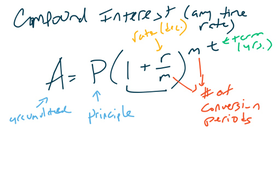 Compound Interest (any time
rate)
rate (dec)
t = term (yrs.)
A = P(1 + r/m)^mt
accumulated
principle
# of
conversion
periods